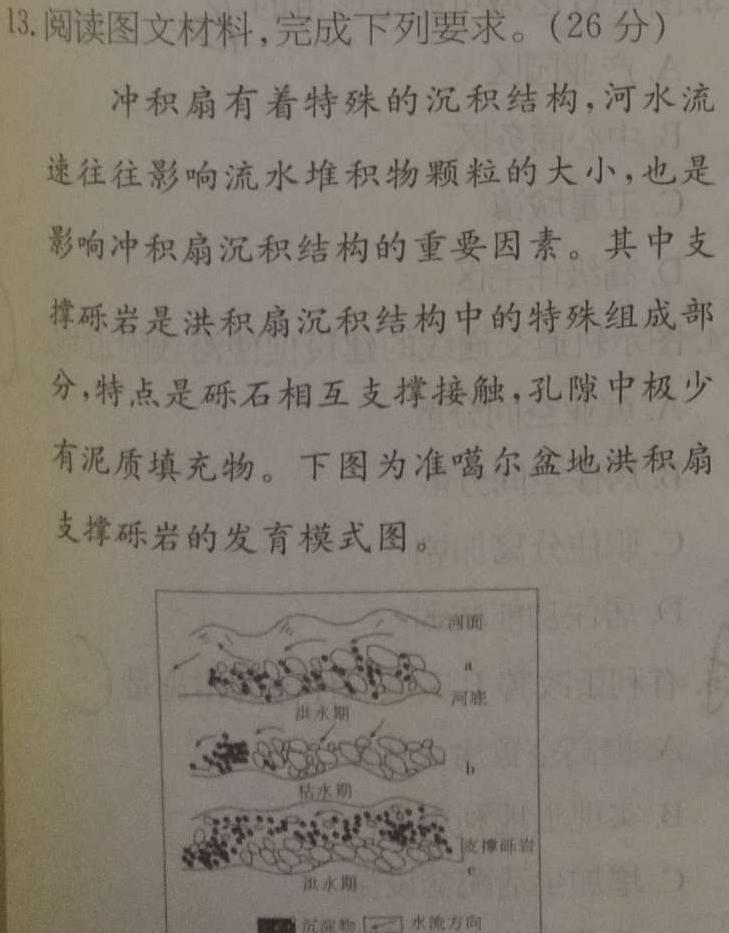 13.阅读图文材料,完成下列要求。(26分)
冲积扇有着特殊的沉积结构,河水流
速往往影响流水堆积物颗粒的大小,也是
影响冲积扇沉积结构的重要因素。其中支
撑砾岩是洪积扇沉积结构中的特殊组成部
分,特点是砾石相互支撑接触,孔隙中极少
有泥质填充物。下图为准噶尔盆地洪积扇
支撑砾岩的发育模式图。
河面
a
河底
洪水期
b
枯水期
支撑砾岩
c
洪水期
沉淀物 水流方向